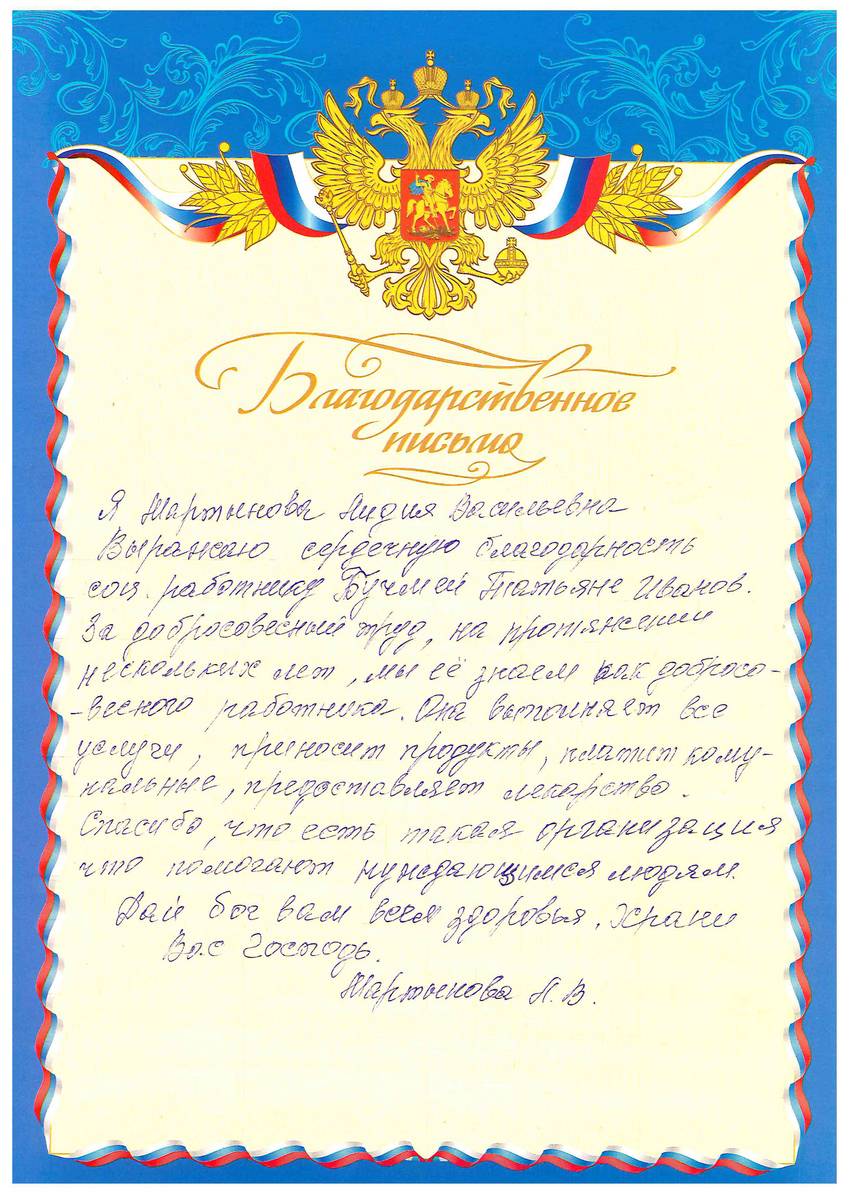 Благодарственное
письмо
Я Мартынова Лидия Васильевна
Выражаю сердечную благодарность
соц. работнику Бучмей Татьяне Иванов.
За добросовесный труд, на протяжении
нескольких лет, мы её знаем как добросо-
-весного работника. Она выполняет все
услуги, приносит продукты, платит кому-
нальные, предоставляет лекарство.
Спасибо, что есть такая организация
что помогают нуждающимся людям.
Дай бог вам всем здоровья. Храни
Вас Господь.
Мартынова Л. В.